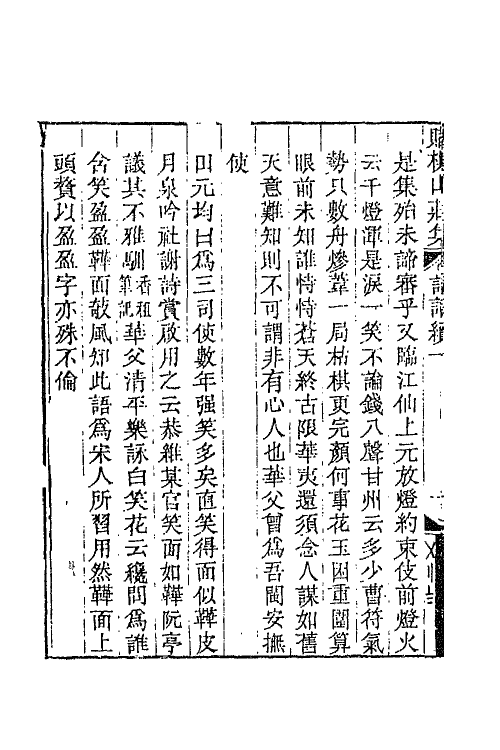 賭棋山莊集 詞話續一
是集殆未諦審乎又臨江仙上元放燈約束伎前燈火
云千燈渾是淚一笑不論錢八聲甘州云多少曹苻氣
勢只數舟燥葦一局枯棋更完顏何事花玉困重圍算
眼前未知誰恃恃蒼天終古限華夷還須念人謀如舊
天意難知則不可謂非有心人也華父曾爲吾閩安撫
使
田元均曰爲三司使數年强笑多矣直笑得面似鞾皮
月泉吟社謝詩賞啟用之云恭維某官笑面如鞾阮亭
議其不雅馴香祖筆記華父清平樂詠白笑花云纔問爲誰
含笑盈盈鞾面皷風知此語爲宋人所習用然鞾面上
頭贅以盈盈字亦殊不倫